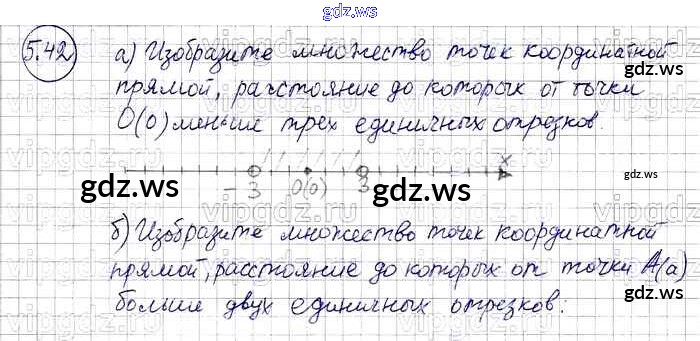 gdz.ws
5.42
а) Изобразите множество точек координатной
прямой, расстояние до которых от точки
О(о) меньше трех единичных отрезков
-3 О(о) 3 x
gdz.ws gdz.ws gdz.ws
б) Изобразите множество точек координатной
прямой, расстояние до которых от точки А(а)
больше двух единичных отрезков:
gdz.ws gdz.ws